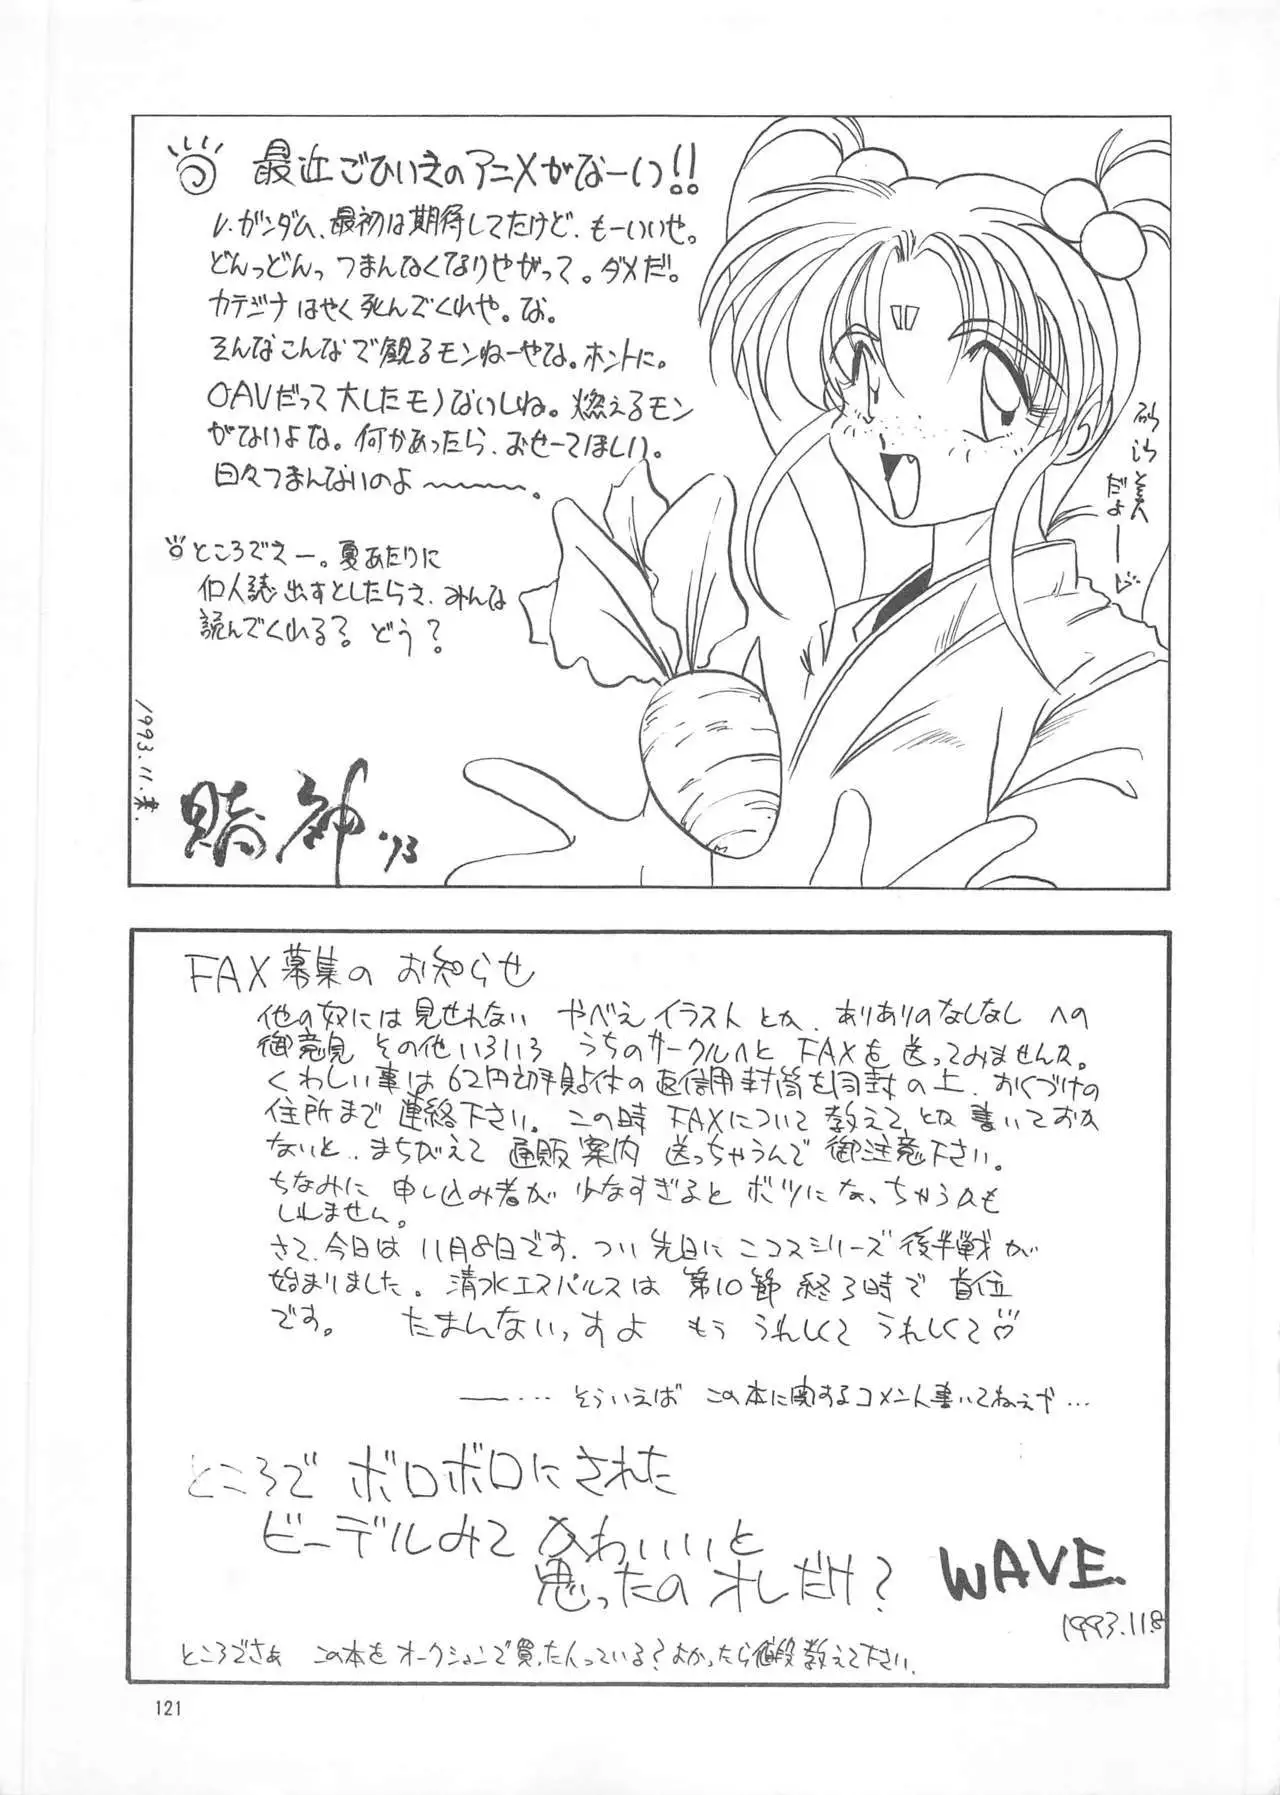 最近ごひいきのアニメがなーいっ!!
V.ガンダム、最初は期待してたけど、もーいいや。
どんっどんっ つまんなくなりやがって。ダメだ。
カテジナ はやく死んでくれや。な。
そんなこんなで観るモンねーやな。ホントに。
OAVだって大したモノないしね。燃えるモン
がないよな。何かあったら、おせーてほしい。
日々つまんないのよ〜〜〜。
ところでえー。夏あたりに
個人誌出すとしたらさ、みんな
読んでくれる？ どう？
砂沙美
だよーじ
1993.11.末.
賭神 '93
FAX募集の お知らせ
他の奴には見せれない やべえイラストとか、ありありのなしなし への
御意見 その他いろいろ うちのサークルへと FAXを送ってみませんか。
くわしい事は 62円切手貼付の返信用封筒を同封の上、おくづけの
住所まで 連絡下さい。この時 FAXについて 教えて、とか 書いておか
ないと、まちがえて 通販案内 送っちゃうんで 御注意下さい。
ちなみに 申し込み者が 少なすぎると ボツになっちゃうかも
しれません。
さて、今日は 11月8日です。つい先日に ニコスシリーズ 後半戦が
始まりました。清水エスパルスは 第10節 終了時で 首位
です。 たまんないっすよ もう うれしくて うれしくて♡
――… そういえば この本に関するコメント書いてねえや…
ところで ボロボロにされた
ビーデルみて かわいいと
思ったの オレだけ？
WAVE.
1993.11.8
ところでさぁ この本を オークションで買った人っている？よかったら値段教えて下さい。
121